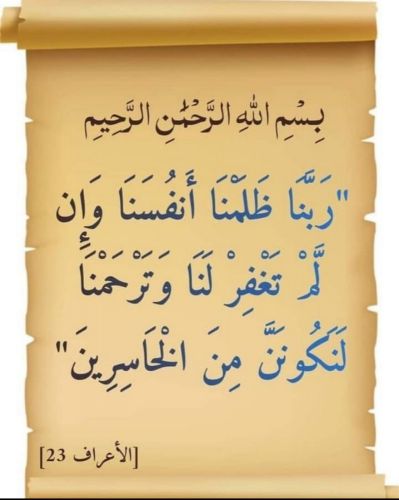 بِسْمِ اللهِ الرَّحْمَٰنِ الرَّحِيمِ
"رَبَّنَا ظَلَمْنَا أَنفُسَنَا وَإِن
لَّمْ تَغْفِرْ لَنَا وَتَرْحَمْنَا
لَنَكُونَنَّ مِنَ الْخَاسِرِينَ"
[الأعراف 23]